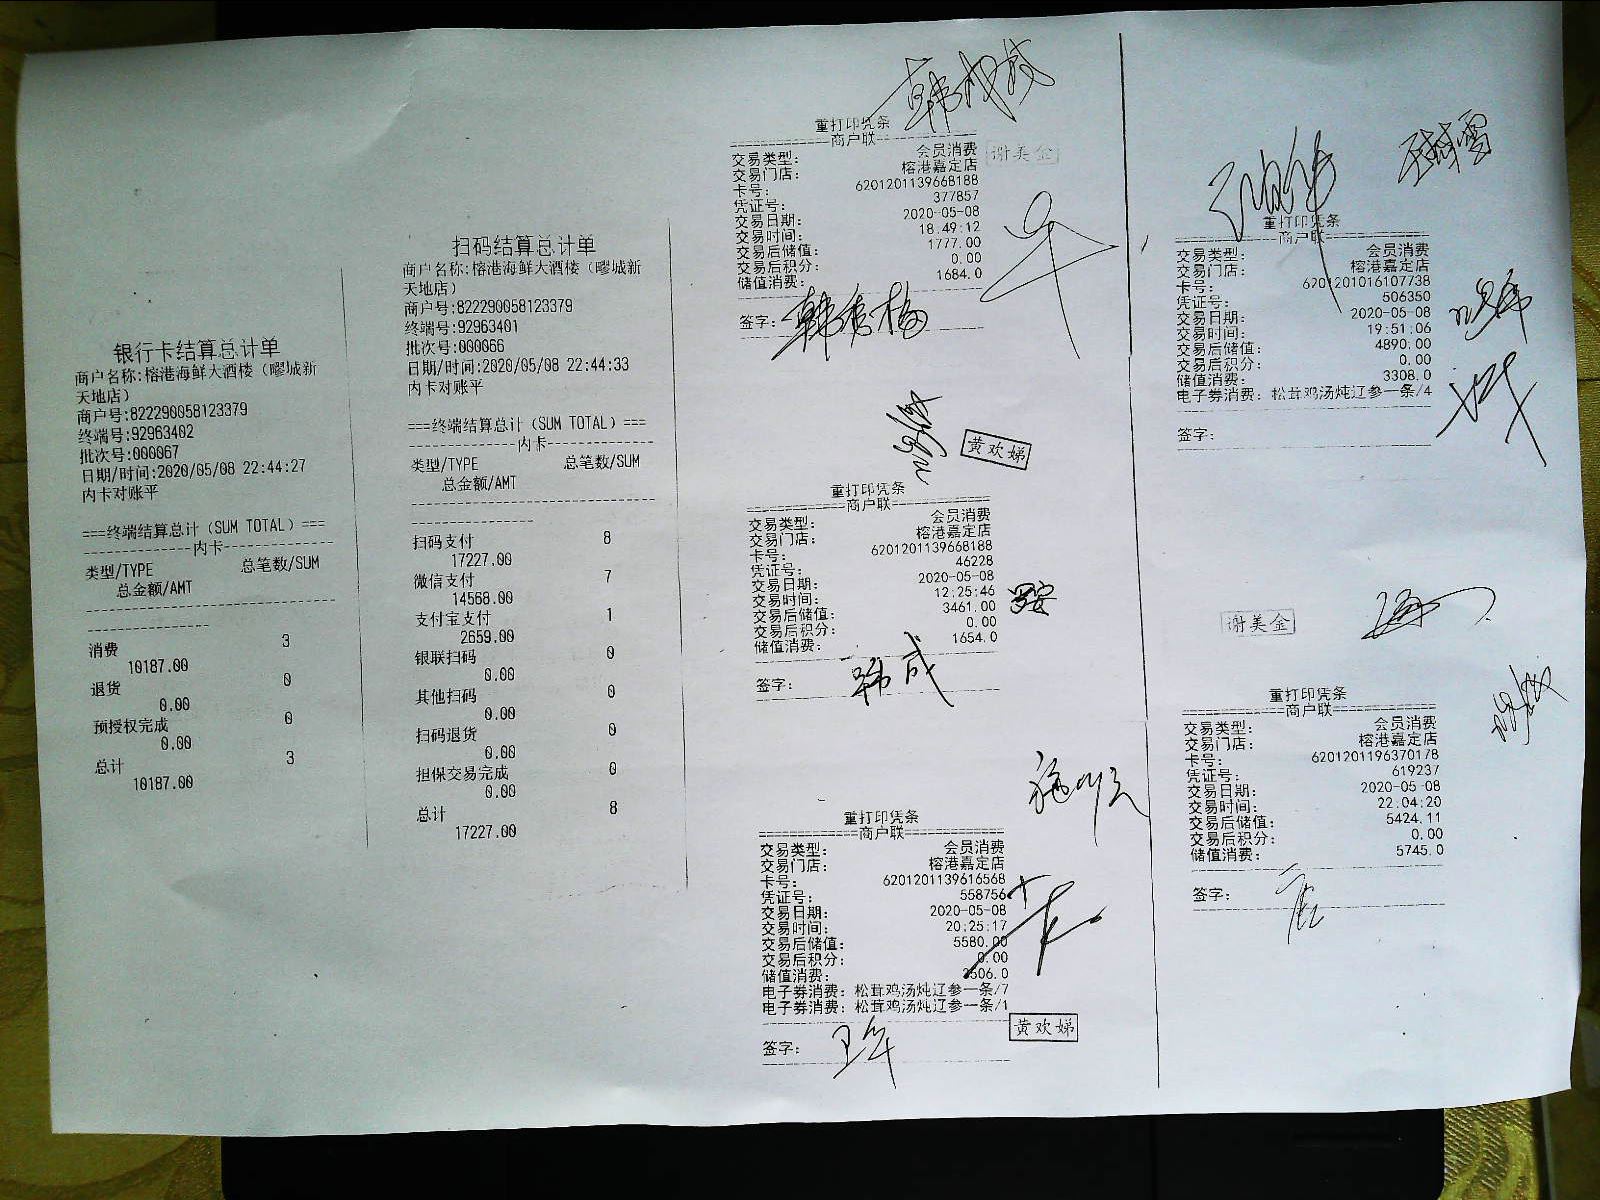 银行卡结算总计单
商户名称:榕港海鲜大酒楼（疁城新
天地店）
商户号:822290058123379
终端号:92963402
批次号:000067
日期/时间:2020/05/08 22:44:27
内卡对账平
===终端结算总计（SUM TOTAL）===
---------------内卡---------------
类型/TYPE 总笔数/SUM
总金额/AMT
消费 3
10187.00
退货 0
0.00
预授权完成 0
0.00
总计 3
10187.00
扫码结算总计单
商户名称:榕港海鲜大酒楼（疁城新
天地店）
商户号:822290058123379
终端号:92963401
批次号:000066
日期/时间:2020/05/08 22:44:33
内卡对账平
===终端结算总计（SUM TOTAL）===
---------------内卡---------------
类型/TYPE 总笔数/SUM
总金额/AMT
扫码支付 8
17227.00
微信支付 7
14568.00
支付宝支付 1
2659.00
银联扫码 0
0.00
其他扫码 0
0.00
扫码退货 0
0.00
担保交易完成 0
0.00
总计 8
17227.00
重打印凭条
============商户联============
交易类型： 会员消费
谢美金
交易门店： 榕港嘉定店
卡号： 6201201139668188
凭证号： 377857
交易日期： 2020-05-08
交易时间： 18:49:12
交易后储值： 1777.00
交易后积分： 0.00
储值消费： 1684.0
签字： 韩秀梅
黄欢娣
重打印凭条
============商户联============
交易类型： 会员消费
交易门店： 榕港嘉定店
卡号： 6201201139668188
凭证号： 46228
交易日期： 2020-05-08
交易时间： 12:25:46
交易后储值： 3461.00
交易后积分： 0.00
储值消费： 1654.0
签字： 韩成
重打印凭条
============商户联============
交易类型： 会员消费
交易门店： 榕港嘉定店
卡号： 6201201139616568
凭证号： 558756
交易日期： 2020-05-08
交易时间： 20:25:17
交易后储值： 5580.00
交易后积分： 0.00
储值消费： 3506.0
电子券消费：松茸鸡汤炖辽参一条/7
电子券消费：松茸鸡汤炖辽参一条/1
黄欢娣
签字：
重打印凭条
============商户联============
交易类型： 会员消费
交易门店： 榕港嘉定店
卡号： 6201201016107738
凭证号： 506350
交易日期： 2020-05-08
交易时间： 19:51:06
交易后储值： 4890.00
交易后积分： 0.00
储值消费： 3308.0
电子券消费：松茸鸡汤炖辽参一条/4
签字：
谢美金
重打印凭条
============商户联============
交易类型： 会员消费
交易门店： 榕港嘉定店
卡号： 6201201196370178
凭证号： 619237
交易日期： 2020-05-08
交易时间： 22:04:20
交易后储值： 5424.11
交易后积分： 0.00
储值消费： 5745.0
签字：